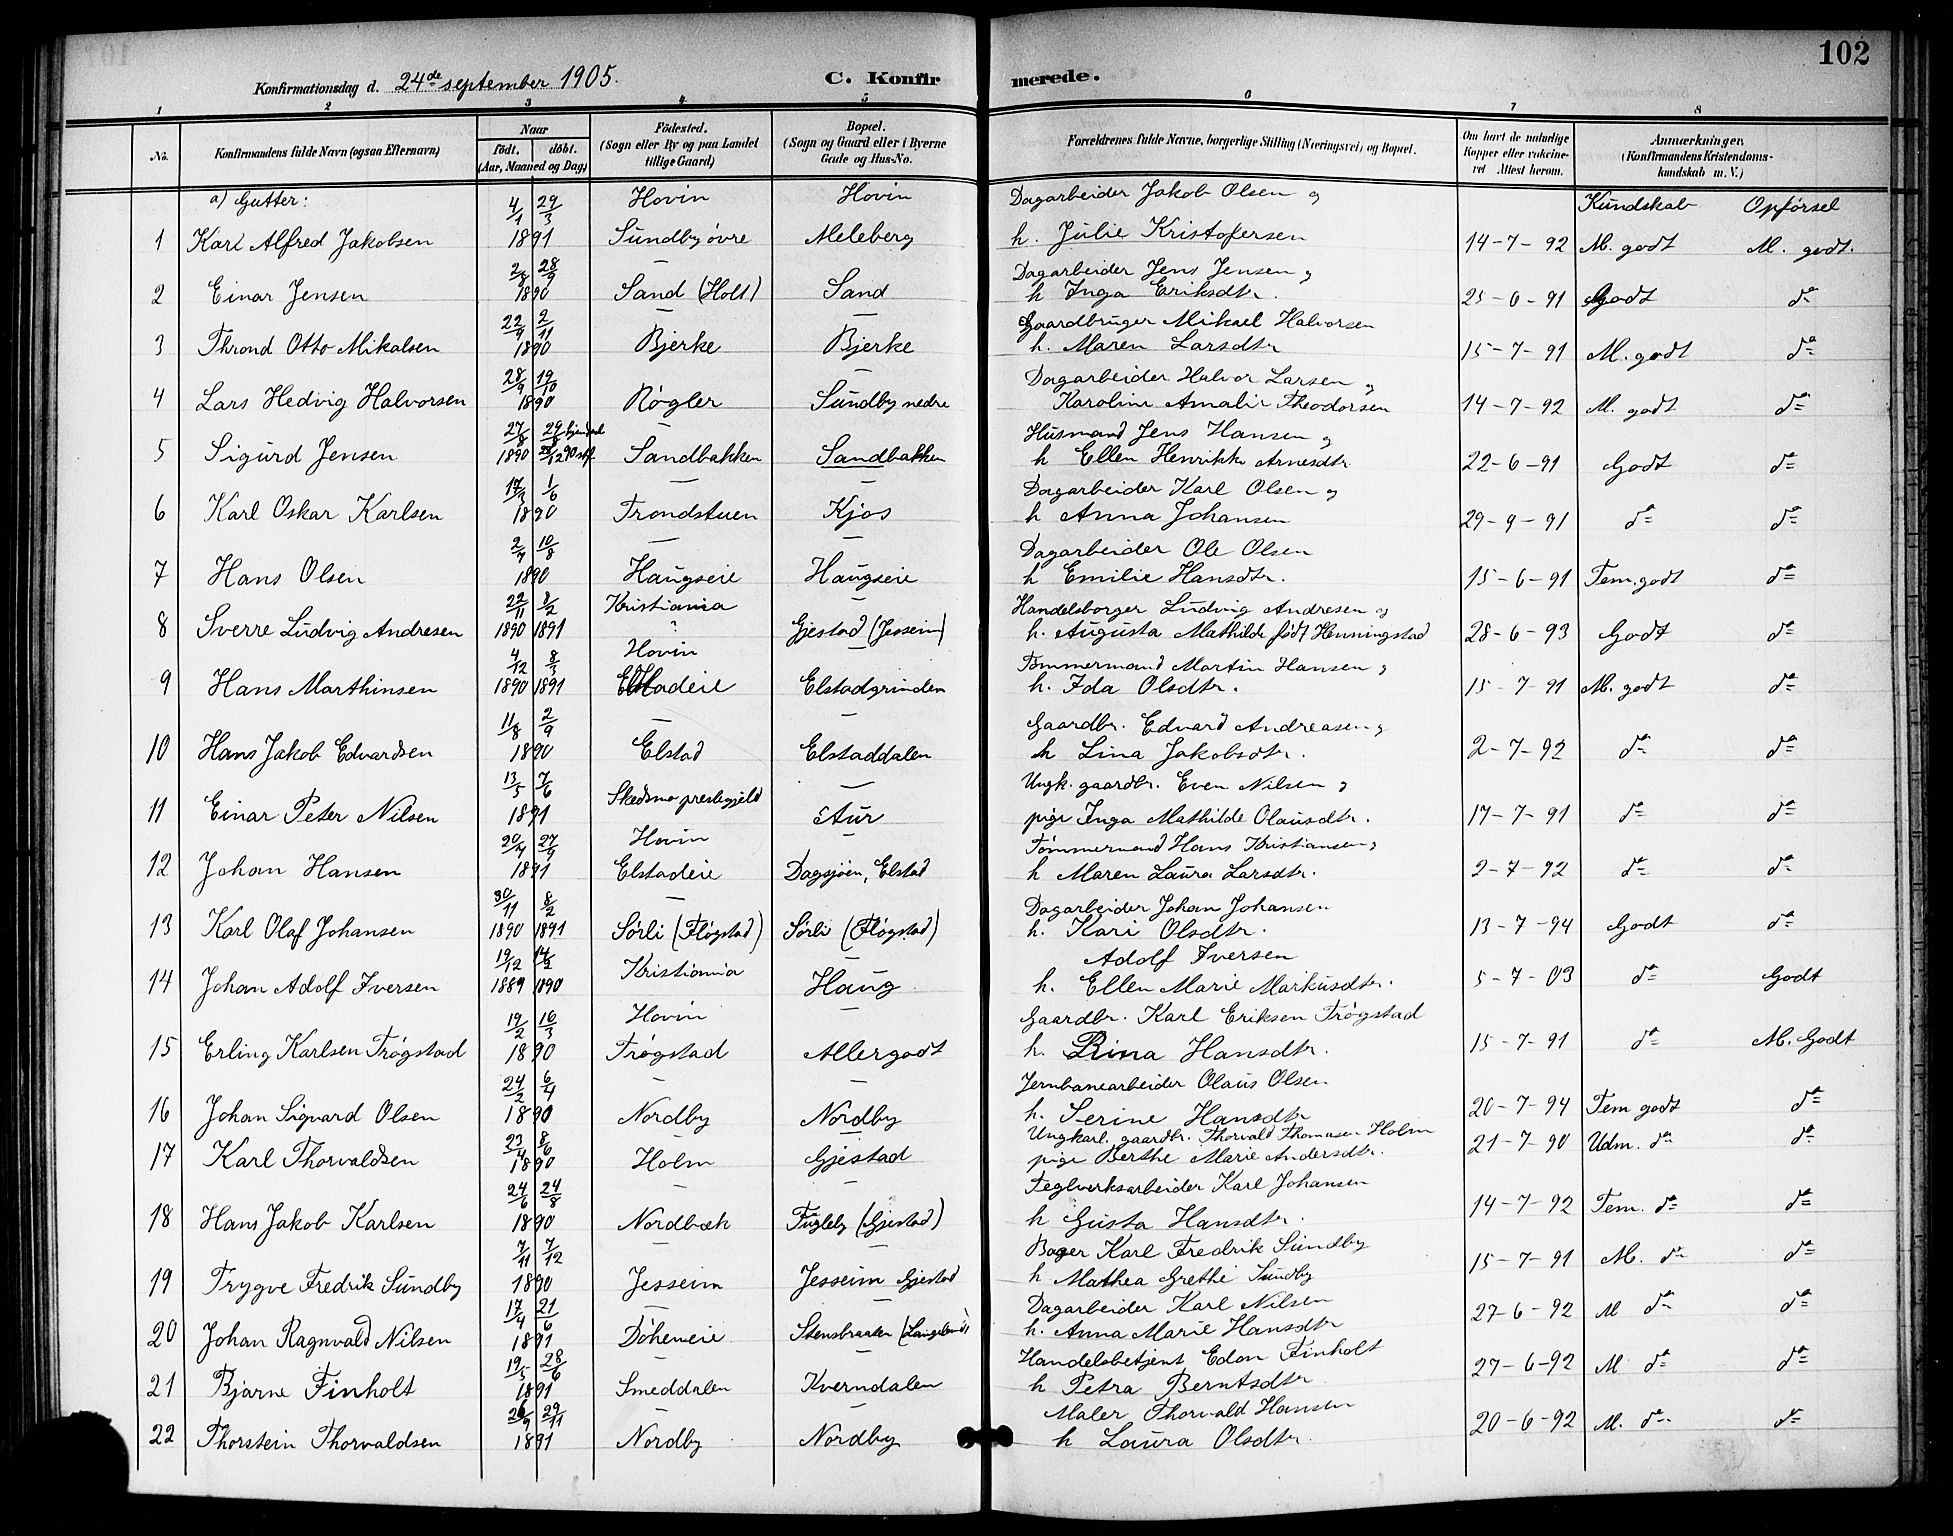 102
Konfirmationsdag d. 24de september 1905.
C. Konfirmerede.
1 2 3 4 5 6 7 8
No.
Konfirmandens fulde Navn (ogsaa Efternavn)
Naar
født. døbt.
(Aar, Maaned og Dag)
Fødested.
(Sogn eller By og paa Landet
tillige Gaard)
Bopæl.
(Sogn og Gaard eller i Byerne
Gade og Hus-No.
Forældrenes fulde Navne, borgerlige Stilling (Næringsvei) og Bopæl.
Om havt de naturlige
Kopper eller vakcine-
ret Attest herom.
Anmærkninger
(Konfirmandens Kristendoms-
kundskab m. V.)
a) Gutter: 4/1 29/3 Hovin Hovin Dagarbeider Jakob Olsen og Kundskab Opførsel
1 Karl Alfred Jakobsen 1891 Sundby øvre Meleberg h. Julie Kristofersen 14-7-92 M. godt M. godt.
2/8 28/9 — Dagarbeider Jens Jensen og
2 Einar Jensen 1890 Sand (Holt) Sand h Inga Eriksdtr. 25-6-91 Godt do
22/9 2/11 — — Gaardbruger Mikael Halvorsen
3 Thrond Otto Mikalsen 1890 Bjerke Bjerke h. Maren Larsdtr 15-7-91 M. godt do
28/9 19/10 — — Dagarbeider Halvor Larsen og
4 Lars Hedvig Halvorsen 1890 Røgler Sundby nedre Karoline Amalie Theodorsen 14-7-92 M. godt do
27/8 29/8 hjemmed — Husmand Jens Hansen og
5 Sigurd Jensen 1890 Sandbakken Sandbakken h Ellen Henrikke Arnesdtr 22-6-91 Godt do
17/3 1/6 — — Dagarbeider Karl Olsen og
6 Karl Oskar Karlsen 1890 Trondstuen Kjos h Anna Johansen 29-9-91 do do
2/7 10/8 — — Dagarbeider Ole Olsen
7 Hans Olsen 1890 Haugseie Haugseie h Emilie Hansdtr. 15-6-91 Tem. godt do
22/11 8/2 Kristiania — Handelsborger Ludvig Andresen og
8 Sverre Ludvig Andresen 1890 1891 Gjestad (Jesseim) h. Augusta Mathilde født Henningstad 28-6-93 Godt do
4/12 8/3 Hovin — Tømmermand Martin Hansen og
9 Hans Marthinsen 1890 1891 Elstadeie Elstadgrinden h. Ida Olsdtr. 15-7-91 M. godt do
11/8 2/9 — — Gaardbr. Edvard Andreasen og
10 Hans Jakob Edvardsen 1890 Elstad Elstaddalen h Lina Jakobsdtr. 2-7-92 do do
13/5 7/6 Skedsmo prestegjeld — Ungk. gaardbr. Even Nilsen og
11 Einar Peter Nilsen 1891 Aur pige Inga Mathilde Olausdtr. 17-7-91 do do
20/7 27/9 Hovin Tømmermand Hans Kristiansen og
12 Johan Hansen 1891 Elstadeie Dagsjøen, Elstad h Maren Laura Larsdtr. 2-7-92 do do
30/11 8/2 — Dagarbeider Johan Johansen
13 Karl Olaf Johansen 1890 1891 Sørli (Fløgstad) Sørli (Fløgstad) h. Kari Olsdtr. 13-7-94 Godt do
19/12 14/2 Kristiania — Adolf Iversen
14 Johan Adolf Iversen 1889 1890 Haug h. Ellen Marie Markusdtr. 5-7-03 do Godt
19/2 16/3 Hovin — Gaardbr. Karl Eriksen Trøgstad
15 Erling Karlsen Trøgstad 1890 Trøgstad Allergodt h. Rina Hansdtr. 15-7-91 do M. Godt
24/2 6/4 — — Jernbanearbeider Olaus Olsen
16 Johan Sigvard Olsen 1890 Nordby Nordby h. Serine Hansdtr 20-7-94 Tem godt do
23/4 8/6 — — Ungkarl. gaardbr. Thorvald Thomasen Holm
17 Karl Thorvaldsen 1890 Holm Gjestad pige Berthe Marie Andersdtr. 21-7-90 Udm. do do
24/6 24/8 — — Teglverksarbeider Karl Johansen
18 Hans Jakob Karlsen 1890 Nordbæk Fugleby (Gjestad) h Gusta Hansdtr. 14-7-92 Tem. do do
7/11 7/12 — — Bager Karl Fredrik Sundby
19 Trygve Fredrik Sundby 1890 Jesseim Jesseim Gjestad h Mathea Grethe Sundby 15-7-91 M. do do
17/4 21/6 — — Dagarbeider Karl Nilsen
20 Johan Ragnvald Nilsen 1891 Døheneie Stensbraaten h. Anna Marie Hansdtr 27-6-92 M do do
19/5 28/6 — Handelsbetjent Edon Finholt
21 Bjarne Finholt 1891 Smeddalen Kverndalen h Petra Berntsdtr 27-6-92 M do do
26/9 29/11 — — Maler Thorvald Hansen
22 Thorstein Thorvaldsen 1891 Nordby Nordby h Laura Olsdtr. 20-6-92 M. do do